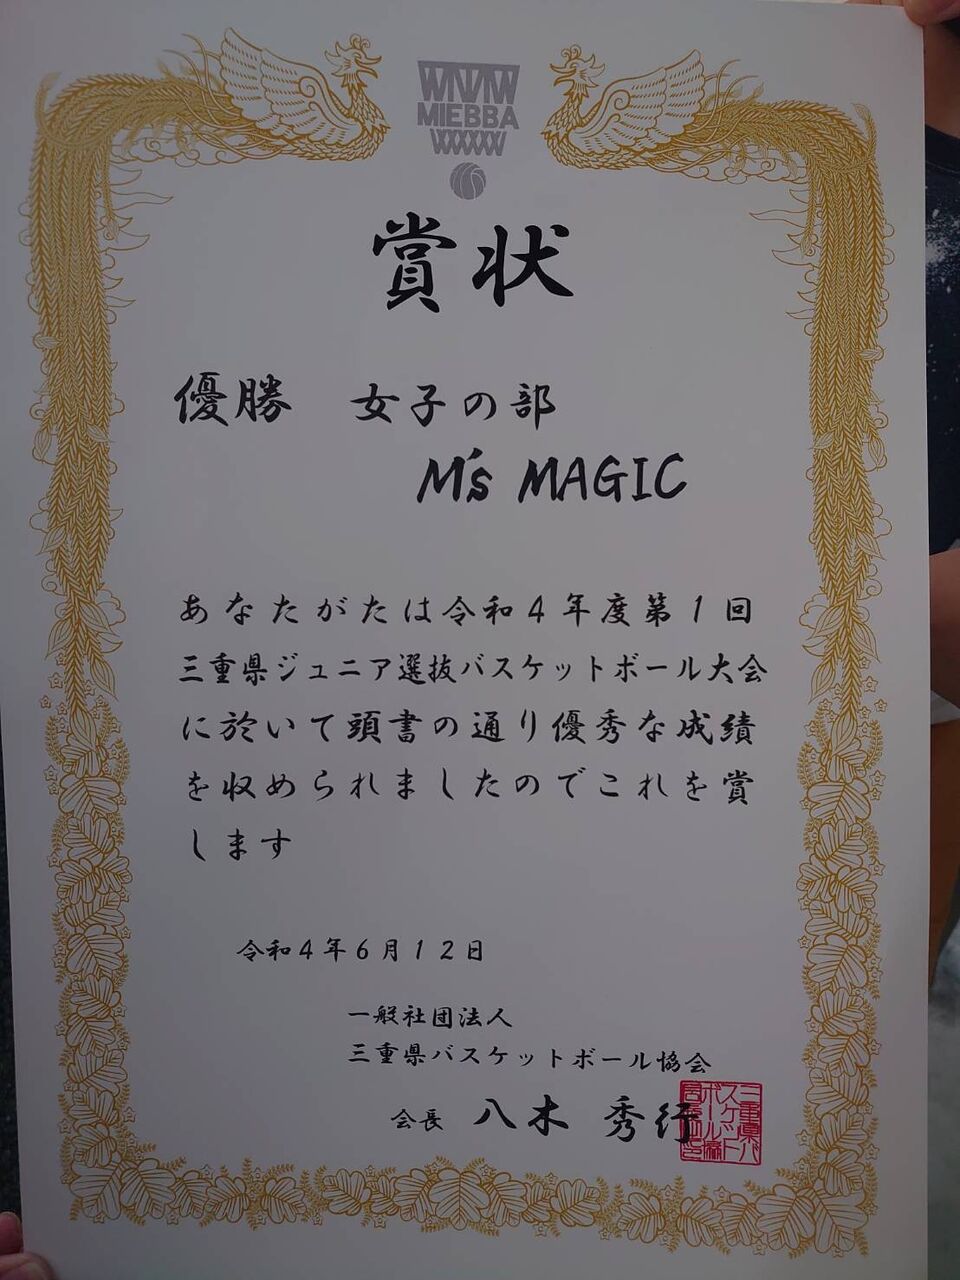 MIEBBA
賞状
優勝 女子の部
M's MAGIC
あなたがたは令和4年度第1回
三重県ジュニア選抜バスケットボール大会
に於いて頭書の通り優秀な成績
を収められましたのでこれを賞
します
令和4年6月12日
一般社団法人
三重県バスケットボール協会
会長 八木 秀行